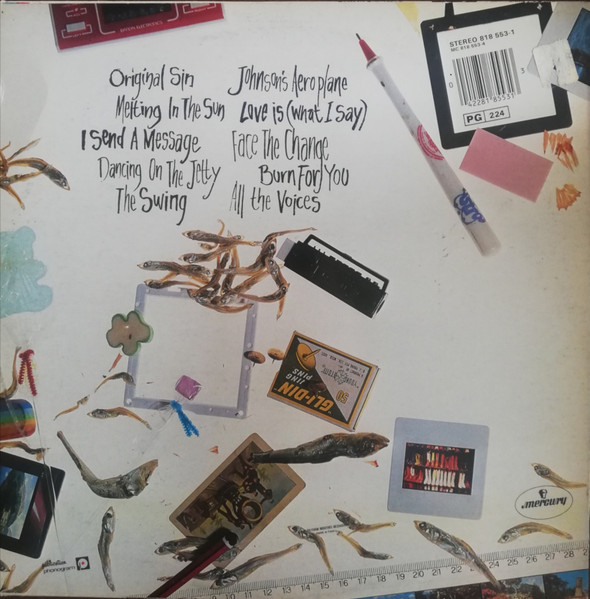 STEREO 818 553-1
MC 818 553-4
0 42281 85531 3
PG 224
Original Sin
Melting In The Sun
I Send A Message
Dancing On The Jetty
The Swing
Johnson's Aeroplane
Love is (what I say)
Face The Change
Burn For You
All the Voices
50
GLI-DIN
JING
PINS
mercury
phonogram
9 10 11 12 13 14 15 16 17 18 19 20 21 22 23 24 25 26 27 28